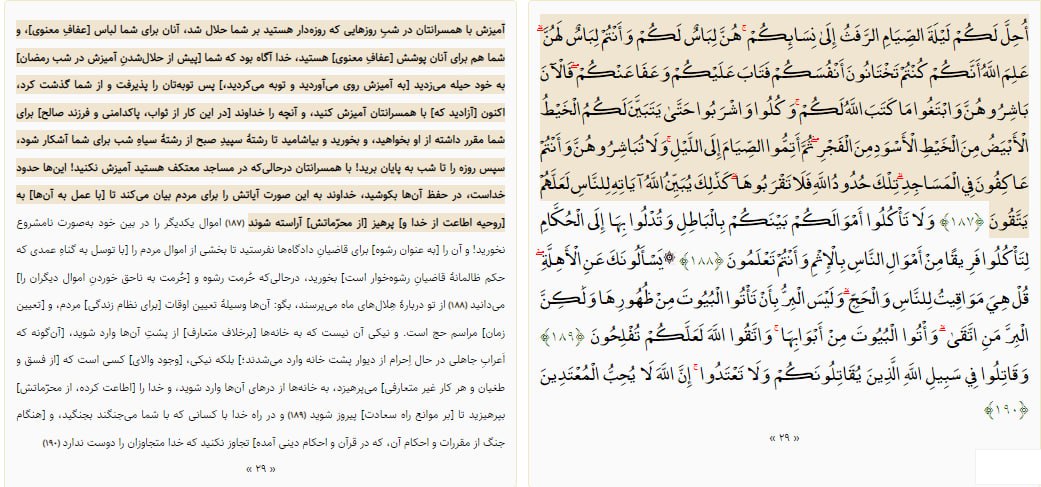 أُحِلَّ لَكُمْ لَيْلَةَ الصِّيَامِ الرَّفَثُ إِلَىٰ نِسَائِكُمْ ۚ هُنَّ لِبَاسٌ لَكُمْ وَأَنْتُمْ لِبَاسٌ لَهُنَّ ۗ
عَلِمَ اللَّهُ أَنَّكُمْ كُنْتُمْ تَخْتَانُونَ أَنْفُسَكُمْ فَتَابَ عَلَيْكُمْ وَعَفَا عَنْكُمْ ۖ فَالْآنَ
بَاشِرُوهُنَّ وَابْتَغُوا مَا كَتَبَ اللَّهُ لَكُمْ ۚ وَكُلُوا وَاشْرَبُوا حَتَّىٰ يَتَبَيَّنَ لَكُمُ الْخَيْطُ
الْأَبْيَضُ مِنَ الْخَيْطِ الْأَسْوَدِ مِنَ الْفَجْرِ ۖ ثُمَّ أَتِمُّوا الصِّيَامَ إِلَى اللَّيْلِ ۚ وَلَا تُبَاشِرُوهُنَّ وَأَنْتُمْ
عَاكِفُونَ فِي الْمَسَاجِدِ ۗ تِلْكَ حُدُودُ اللَّهِ فَلَا تَقْرَبُوهَا ۗ كَذَٰلِكَ يُبَيِّنُ اللَّهُ آيَاتِهِ لِلنَّاسِ لَعَلَّهُمْ
يَتَّقُونَ ﴿١٨٧﴾ وَلَا تَأْكُلُوا أَمْوَالَكُمْ بَيْنَكُمْ بِالْبَاطِلِ وَتُدْلُوا بِهَا إِلَى الْحُكَّامِ
لِتَأْكُلُوا فَرِيقًا مِنْ أَمْوَالِ النَّاسِ بِالْإِثْمِ وَأَنْتُمْ تَعْلَمُونَ ﴿١٨٨﴾ ۞ يَسْأَلُونَكَ عَنِ الْأَهِلَّةِ ۖ
قُلْ هِيَ مَوَاقِيتُ لِلنَّاسِ وَالْحَجِّ ۗ وَلَيْسَ الْبِرُّ بِأَنْ تَأْتُوا الْبُيُوتَ مِنْ ظُهُورِهَا وَلَٰكِنَّ
الْبِرَّ مَنِ اتَّقَىٰ ۗ وَأْتُوا الْبُيُوتَ مِنْ أَبْوَابِهَا ۚ وَاتَّقُوا اللَّهَ لَعَلَّكُمْ تُفْلِحُونَ ﴿١٨٩﴾
وَقَاتِلُوا فِي سَبِيلِ اللَّهِ الَّذِينَ يُقَاتِلُونَكُمْ وَلَا تَعْتَدُوا ۚ إِنَّ اللَّهَ لَا يُحِبُّ الْمُعْتَدِينَ
﴿١٩٠﴾
« ٢٩ »
آمیزش با همسرانتان در شبِ روزهایی که روزه‌دار هستید بر شما حلال شد، آنان برای شما لباس [عفافِ معنوی]، و
شما هم برای آنان پوشش [عفافِ معنوی] هستید، خدا آگاه بود که شما [پیش از حلال‌شدنِ آمیزش در شب رمضان]
به خود حیله می‌زدید [به آمیزش روی می‌آوردید و توبه می‌کردید،] پس توبه‌تان را پذیرفت و از شما گذشت کرد،
اکنون [آزادید که] با همسرانتان آمیزش کنید، و آنچه را خداوند [در این کار از ثواب، پاکدامنی و فرزند صالح] برای
شما مقرر داشته از او بخواهید، و بخورید و بیاشامید تا رشتهٔ سپیدِ صبح از رشتهٔ سیاهِ شب برای شما آشکار شود،
سپس روزه را تا شب به پایان برید! با همسرانتان درحالی‌که در مساجد معتکف هستید آمیزش نکنید! این‌ها حدود
خداست، در حفظ آن‌ها بکوشید، خداوند به این صورت آیاتش را برای مردم بیان می‌کند تا [با عمل به آن‌ها] به
[روحیه اطاعت از خدا و] پرهیز [از محرّماتش] آراسته شوند (۱۸۷) اموال یکدیگر را در بین خود به‌صورت نامشروع
نخورید! و آن را [به عنوان رشوه] برای قاضیانِ دادگاه‌ها نفرستید تا بخشی از اموال مردم را [با توسل به گناهِ عمدی که
حکم ظالمانهٔ قاضیانِ رشوه‌خوار است] بخورید، درحالی‌که حُرمت رشوه و [حُرمت به ناحق خوردنِ اموال دیگران را]
می‌دانید (۱۸۸) از تو دربارهٔ هِلال‌های ماه می‌پرسند، بگو: آن‌ها وسیلهٔ تعیین اوقات [برای نظام زندگی] مردم، و [تعیین
زمان] مراسم حج است. و نیکی آن نیست که به خانه‌ها [برخلاف متعارف] از پشتِ آن‌ها وارد شوید، [آن‌گونه که
اَعرابِ جاهلی در حال اِحرام از دیوار پشت خانه وارد می‌شدند؛] بلکه نیکی، [وجود والای] کسی است که [از فسق و
طغیان و هر کار غیر متعارفی] می‌پرهیزد، به خانه‌ها از درهای آن‌ها وارد شوید، و خدا را [اطاعت کرده، از محرّماتش]
بپرهیزید تا [بر موانع راه سعادت] پیروز شوید (۱۸۹) و در راه خدا با کسانی که با شما می‌جنگند بجنگید، و [هنگام
جنگ از مقررات و احکام آن، که در قرآن و احکام دینی آمده] تجاوز نکنید که خدا متجاوزان را دوست ندارد (۱۹۰)
« ۲۹ »